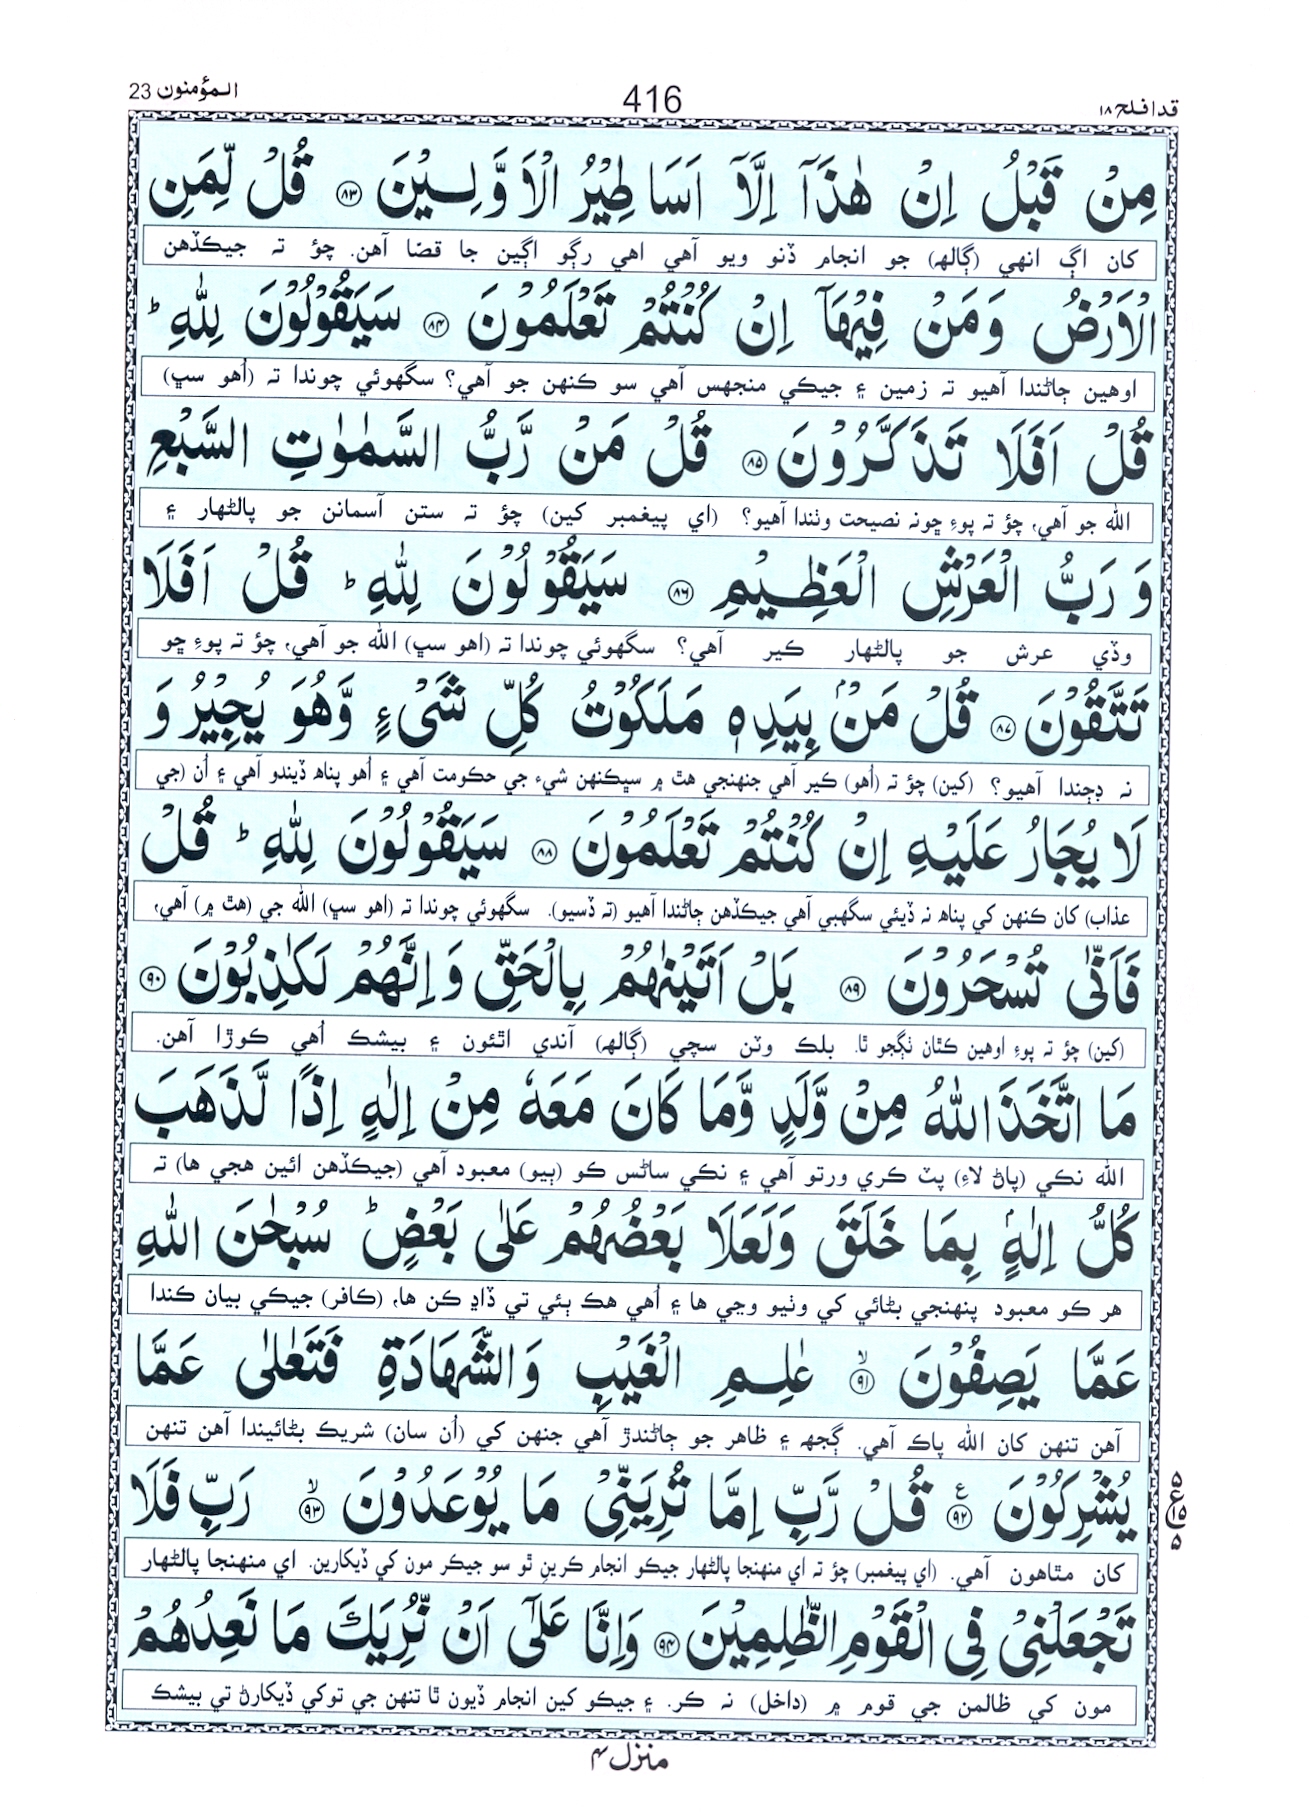 المؤمنون 23
416
قد افلح ١٨
مِنْ قَبْلُ اِنْ هٰذَآ اِلَّآ اَسَاطِيْرُ الْاَوَّلِـيْنَ ﴿٨٣﴾ قُلْ لِّمَنِ
کان اڳ انهي (ڳالھ) جو انجام ڏنو ويو آهي اهي رڳو اڳين جا قصّا آهن. چؤ تہ جيڪڏهن
الْاَرْضُ وَمَنْ فِيْهَآ اِنْ كُنْتُمْ تَعْلَمُوْنَ ﴿٨٤﴾ سَيَقُوْلُوْنَ لِلّٰهِ ؕ
اوهين ڄاڻندا آهيو تہ زمين ۽ جيڪي منجهس آهي سو ڪنهن جو آهي؟ سگهوئي چوندا تہ (اُهو سڀ)
قُلْ اَفَلَا تَذَكَّرُوْنَ ﴿٨٥﴾ قُلْ مَنْ رَّبُّ السَّمٰوٰتِ السَّبْعِ
الله جو آهي، چؤ تہ پوءِ ڇونہ نصيحت وٺندا آهيو؟ (اي پيغمبر کين) چؤ تہ ستن آسمانن جو پالڻهار ۽
وَ رَبُّ الْعَرْشِ الْعَظِـيْمِ ﴿٨٦﴾ سَيَقُوْلُوْنَ لِلّٰهِ ؕ قُلْ اَفَلَا
وڏي عرش جو پالڻهار ڪير آهي؟ سگهوئي چوندا تہ (اهو سڀ) الله جو آهي، چؤ تہ پوءِ ڇو
تَتَّقُوْنَ ﴿٨٧﴾ قُلْ مَنْۢ بِيَدِهٖ مَلَكُوْتُ كُلِّ شَىْءٍ وَّهُوَ يُجِيْرُ وَ
نہ ڊڄندا آهيو؟ (کين) چؤ تہ (اُهو) ڪير آهي جنهنجي هٿ ۾ سڀڪنهن شيء جي حڪومت آهي ۽ اُهو پناھ ڏيندو آهي ۽ اُن (جي
لَا يُجَارُ عَلَيْهِ اِنْ كُنْتُمْ تَعْلَمُوْنَ ﴿٨٨﴾ سَيَقُوْلُوْنَ لِلّٰهِ ؕ قُلْ
عذاب) کان ڪنهن کي پناھ نہ ڏيئي سگهبي آهي جيڪڏهن ڄاڻندا آهيو (تہ ڏسيو). سگهوئي چوندا تہ (اهو سڀ) الله جي (هٿ ۾) آهي،
فَاَنّٰى تُسْحَرُوْنَ ﴿٨٩﴾ بَلْ اَتَيْنٰهُمْ بِالْحَقِّ وَاِنَّهُمْ لَكٰذِبُوْنَ ﴿٩٠﴾
(کين) چؤ تہ پوءِ اوهين ڪٿان ٺڳجو ٿا. بلڪ وٽن سچي (ڳالھ) آندي اٿئون ۽ بيشڪ اُهي ڪوڙا آهن.
مَا اتَّخَذَ اللّٰهُ مِنْ وَّلَدٍ وَّمَا كَانَ مَعَهٗ مِنْ اِلٰهٍ اِذًا لَّذَهَبَ
الله نڪي (پاڻ لاءِ) پٽ ڪري ورتو آهي ۽ نڪي ساڻس ڪو (ٻيو) معبود آهي (جيڪڏهن ائين هجي ها) تہ
كُلُّ اِلٰهٍۢ بِمَا خَلَقَ وَلَعَلَا بَعْضُهُمْ عَلٰى بَعْضٍ ؕ سُبْحٰنَ اللّٰهِ
هر ڪو معبود پنهنجي بڻائي کي وٺيو وڃي ها ۽ اُهي هڪ ٻئي تي ڏاڍ ڪن ها، (ڪافر) جيڪي بيان ڪندا
عَمَّا يَصِفُوْنَ ۙ﴿٩١﴾ عٰلِـمِ الْغَيْبِ وَالشَّهَادَةِ فَتَعٰلٰى عَمَّا
آهن تنهن کان الله پاڪ آهي. ڳجھ ۽ ظاهر جو ڄاڻندڙ آهي جنهن کي (اُن سان) شريڪ بڻائيندا آهن تنهن
يُشْرِكُوْنَ ﴿٩٢﴾ ع قُلْ رَّبِّ اِمَّا تُرِيَنِّىْ مَا يُوْعَدُوْنَ ۙ﴿٩٣﴾ رَبِّ فَلَا
٥ ع ١٥ ٥
کان مٿاهون آهي. (اي پيغمبر) چؤ تہ اي منهنجا پالڻهار جيڪو انجام ڪرين ٿو سو جيڪر مون کي ڏيکارين. اي منهنجا پالڻهار
تَجْعَلْنِىْ فِى الْقَوْمِ الظّٰلِمِيْنَ ﴿٩٤﴾ وَاِنَّا عَلٰٓى اَنْ نُّرِيَكَ مَا نَعِدُهُمْ
مون کي ظالمن جي قوم ۾ (داخل) نہ ڪر. ۽ جيڪو کين انجام ڏيون ٿا تنهن جي توکي ڏيکارڻ تي بيشڪ
منزل ٤